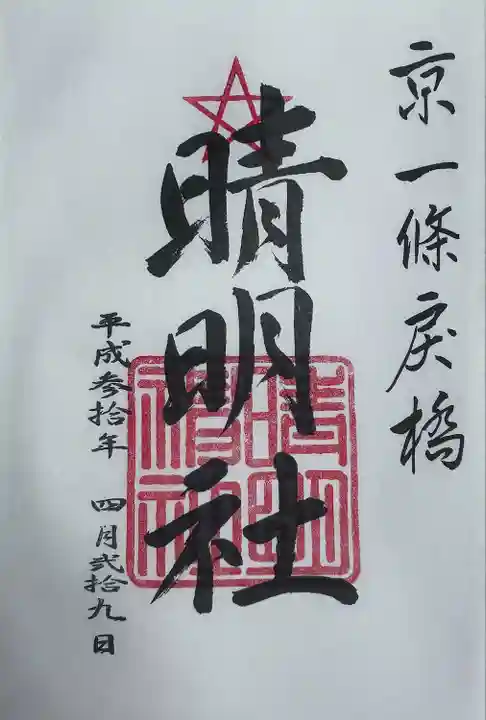 京一條戻橋
晴明社
平成参拾年 四月弐拾九日